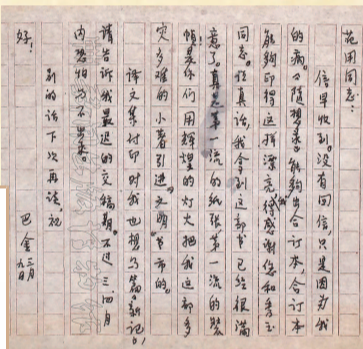 范用同志:
信早收到。没有回信,只是因为我
的病。《随想录》能够出合订本,合订本
能够印得这样漂亮,我得感谢您和秀玉
同志。说真话,我拿到这部书已经很满
意了。真是第一流的纸张,第一流的装
帧!是你们用辉煌的灯火把我这部多
灾多难的小著引进“文明”书市的。
译文集付印时我也想写篇“新记”,
请告诉我最迟的交稿期。不过三、四月
内恐怕写不出来。
别的话下次再谈。祝
好!
巴金
三月九日